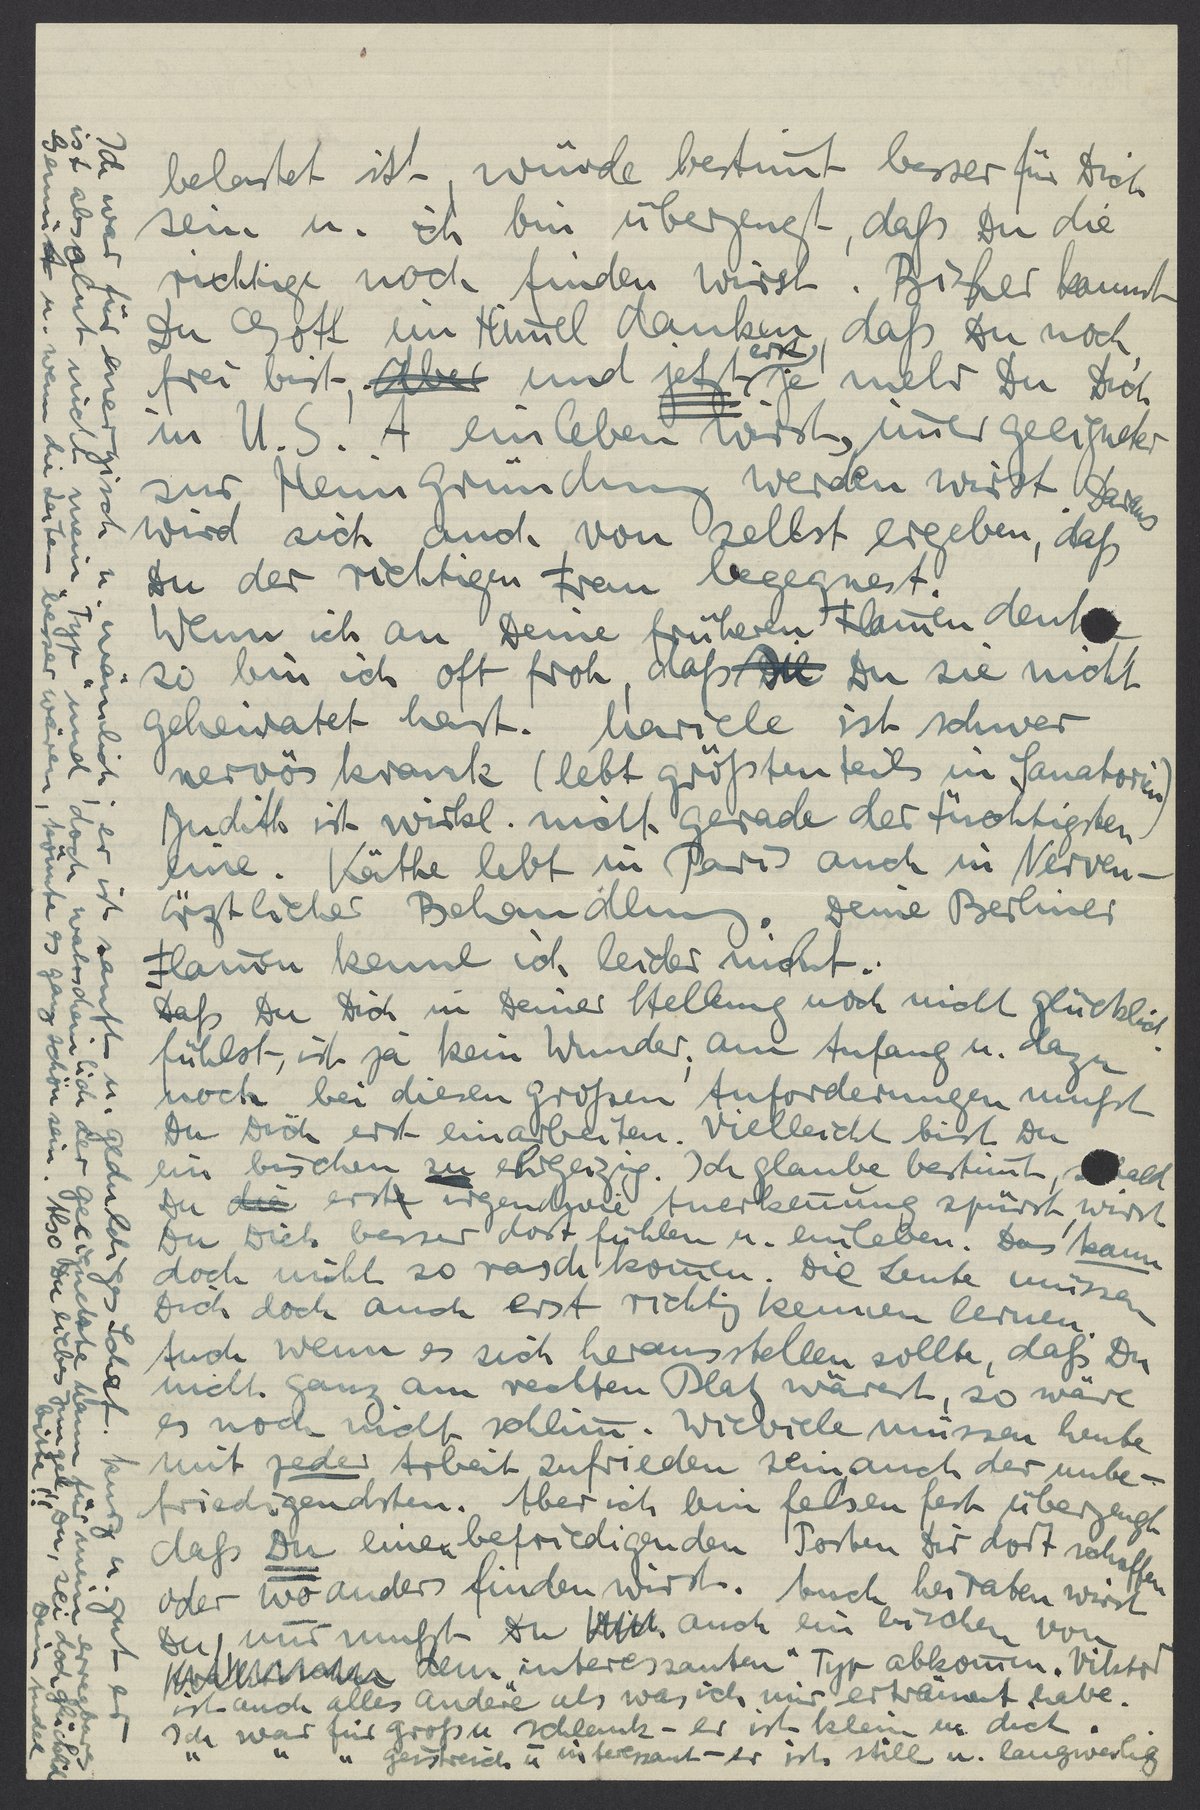 belastet ist, würde bestim̄t besser für Dich
sein u. ich bin überzeugt, daß Du die
richtige noch finden wirst. Bisher kannst
Du Gott im Him̄el danken, daß Du noch
frei bist, Aber und jetzt erst, je mehr Du Dich
in U.S.A einleben wirst, im̄er geeigneter
zur Heimgründung werden wirst. Daraus
wird sich auch von selbst ergeben, daß
Du der richtigen Frau begegnest.
Wenn ich an Deine früheren Flam̄en denke
so bin ich oft froh, daß Du Du sie nicht
geheiratet hast. Mariele ist schwer
nervös krank (lebt größtenteils in Sanatorien)
Judith ist wirkl. nicht gerade der tüchtigsten
eine. Käthe lebt in Paris auch in Nerven-
ärztlicher Behandlung. Deine Berliner
Flam̄en kenne ich leider nicht.
Daß Du Dich in Deiner Stellung noch nicht glücklich
fühlst, ist ja kein Wunder, am Anfang u. dazu
noch bei diesen großen Anforderungen mußt
Du Dich erst einarbeiten. Vielleicht bist Du
ein bischen zu ehrgeizig. Ich glaube bestim̄t, sobald
Du die erst irgendwie Anerkennung spürst, wirst
Du Dich besser dort fühlen u. einleben. Das kann
doch nicht so rasch kom̄en. Die Leute müssen
Dich doch auch erst richtig kennen lernen.
Auch wenn es sich herausstellen sollte, daß Du
nicht ganz am rechten Platz wärest, so wäre
es noch nicht schlim̄. Wieviele müssen heute
mit jeder Arbeit zufrieden sein, auch der unbe-
friedigendsten. Aber ich bin felsenfest überzeugt
daß Du einen befriedigenden Posten Dir dort schaffen
oder wo anders finden wirst. Auch heiraten wirst
Du, nur mußt Du auch ein bischen von
dem „interessanten“ Typ abkom̄en. Viktor
ist auch alles andere als was ich mir erträumt habe.
Ich war für groß u. schlank - er ist klein u. dick.
" " " geistreich u. interessant - er ist still u. langweilig
Ich war für energisch u. männlich, er ist sanft u. geduldiges Schaf. kurz u. gut er
ist absolut nicht „mein Typ“ und doch wahrscheinlich der geeignetste Mann für mein erregbares
Gemüt u. wenn die Zeiten besser wären, könnte es ganz schön sein. Also Du liebes Jungele Du, sei doch glücklich
bitte!! Dein Madel